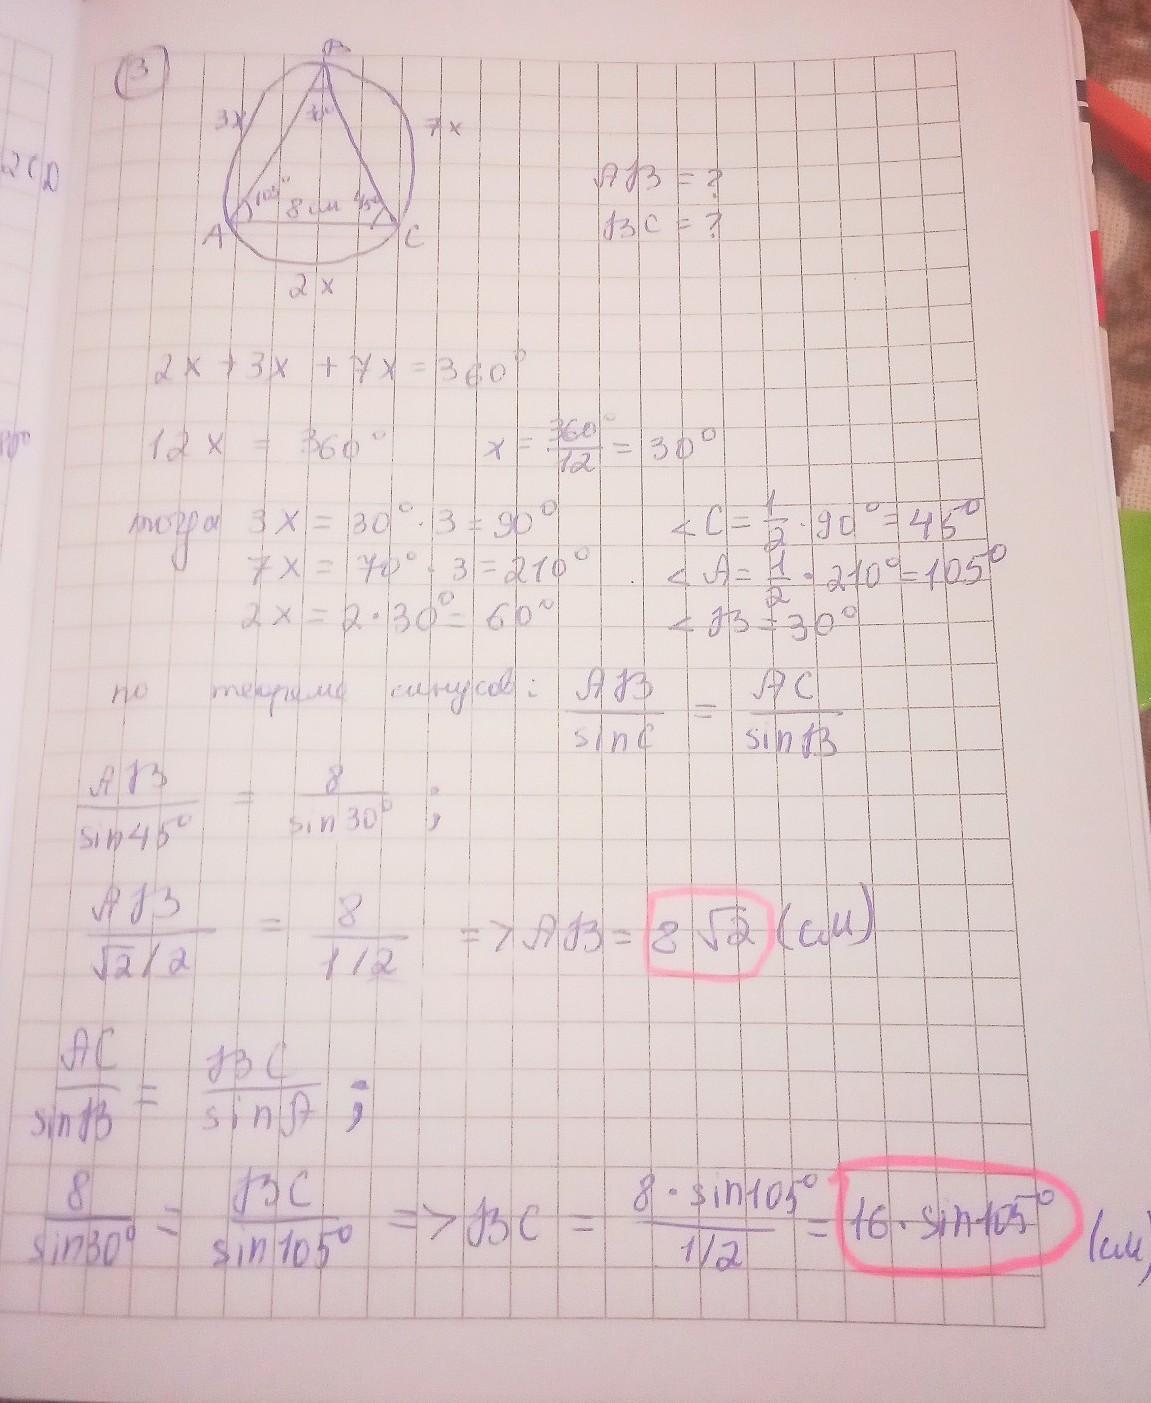 2CD
(3)
B
3x
7x
105°
8 см
45°
A
C
2x
AB = ?
BC = ?
2x + 3x + 7x = 360°
12x = 360° x = 360°/12 = 30°
тогда 3x = 30° · 3 = 90° < C = 1/2 · 90° = 45°
7x = 70° · 3 = 210° < A = 1/2 · 210° = 105°
2x = 2 · 30° = 60° < B = 30°
по теореме синусов: AB/sin C = AC/sin B
AB/sin 45° = 8/sin 30° ;
AB/√2/2 = 8/1/2 => AB = 8√2 (см)
AC/sin B = BC/sin A ;
8/sin 30° = BC/sin 105° => BC = 8 · sin 105°/1/2 = 16 · sin 105° (см)